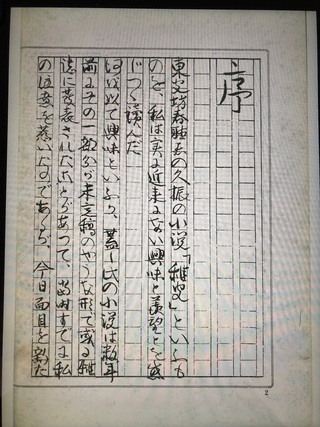 序
の久振の小説「」といふも
のを、私は実に近来にない興味と羨望とを感
じつゝ読んだ
何を以て興味といふか、蓋し氏の小説は数年
前にその一部分が未定稿のやうな形で或る雑
誌に発表されたことがあつて、当時すでに私
の注意を惹いたのであるが、今日面目を新た
2